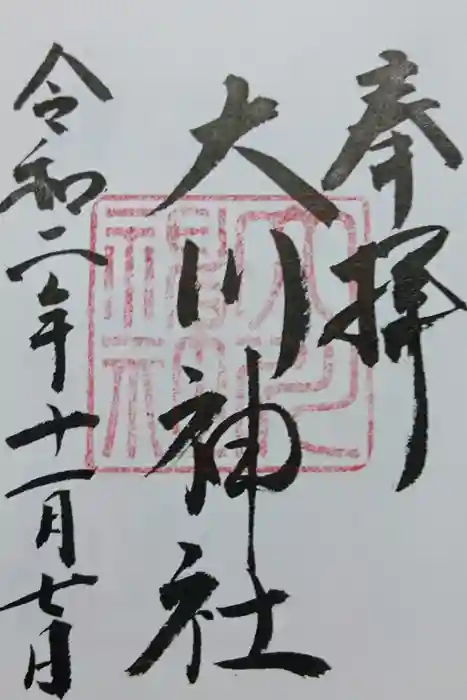 奉拝
大川神社
令和二年十一月七日